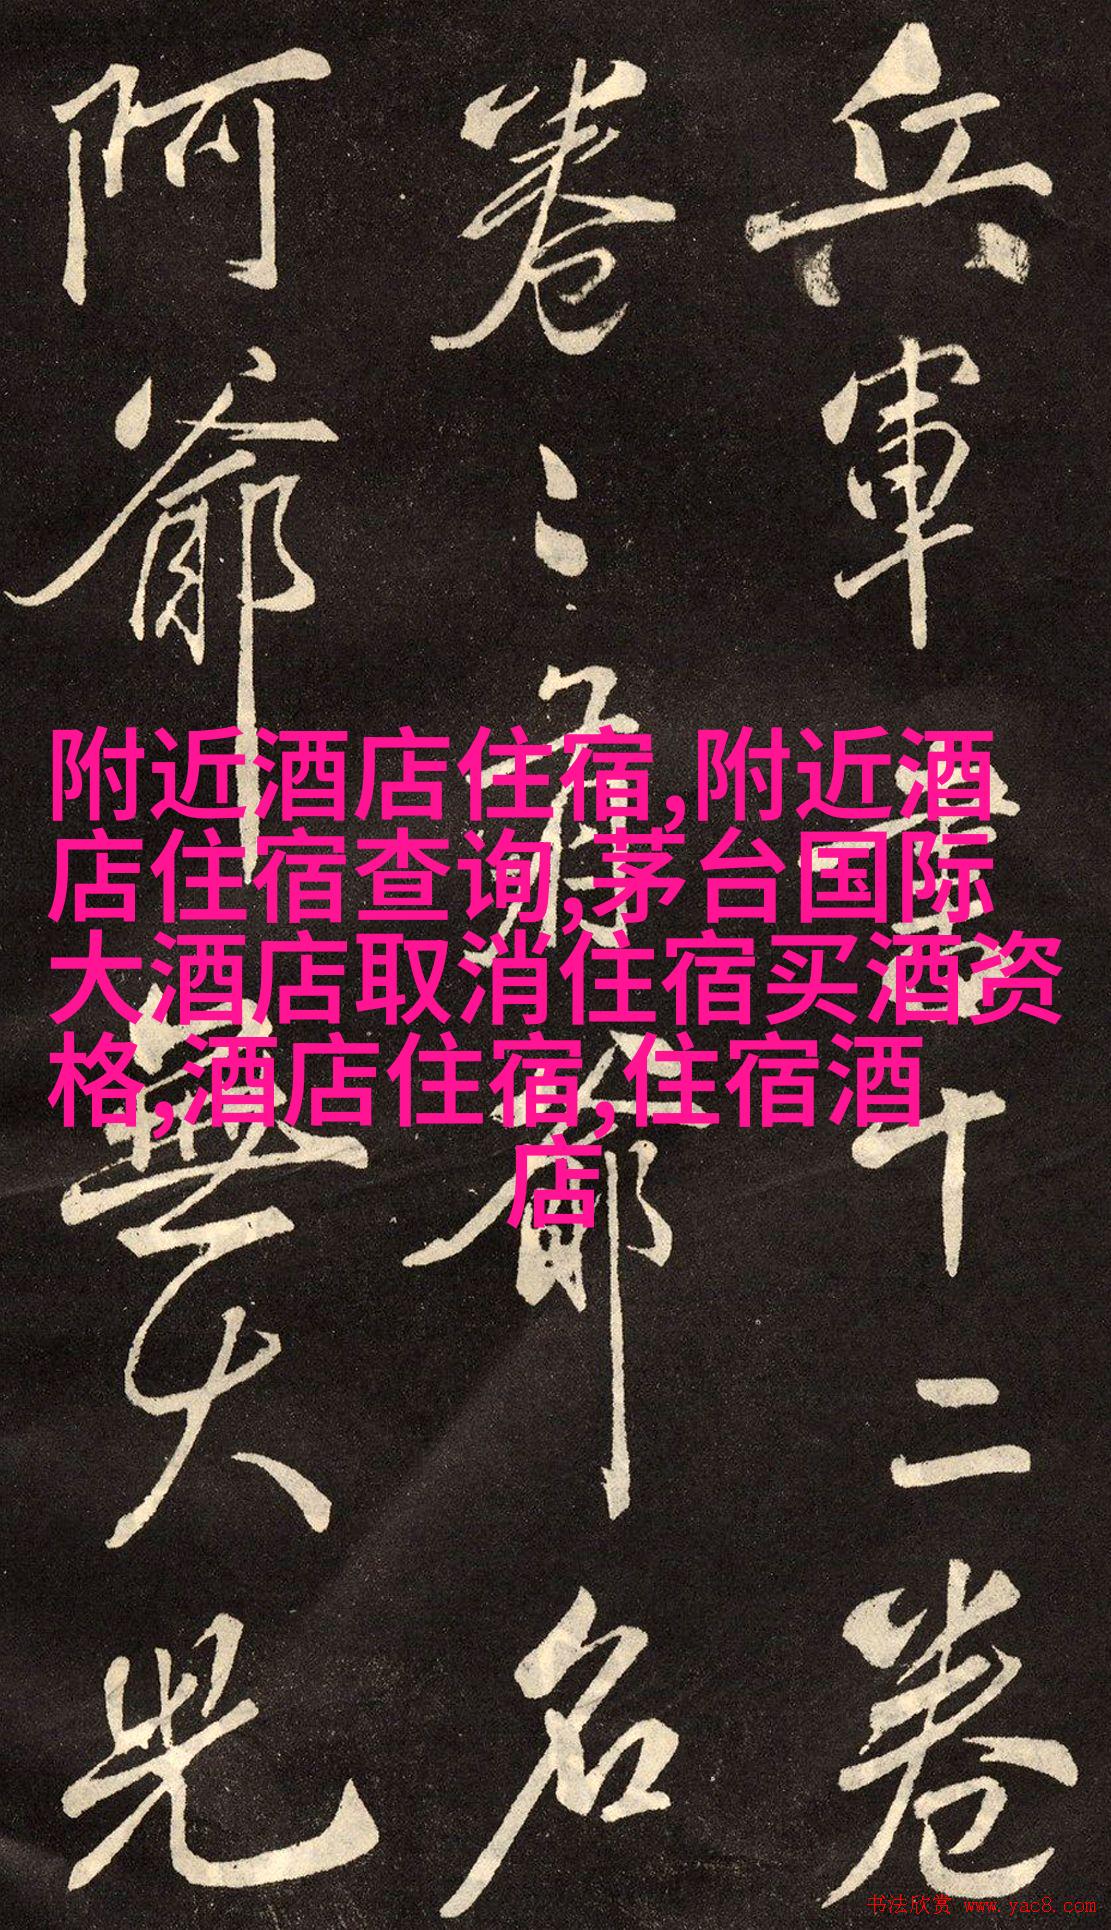 兵軍書十二卷
卷卷有爺名
阿爺無大兒
附近酒店住宿,附近酒
店住宿查询,茅台国际
大酒店取消住宿买酒资
格,酒店住宿,住宿酒
店
书法欣赏 www.yac8.com